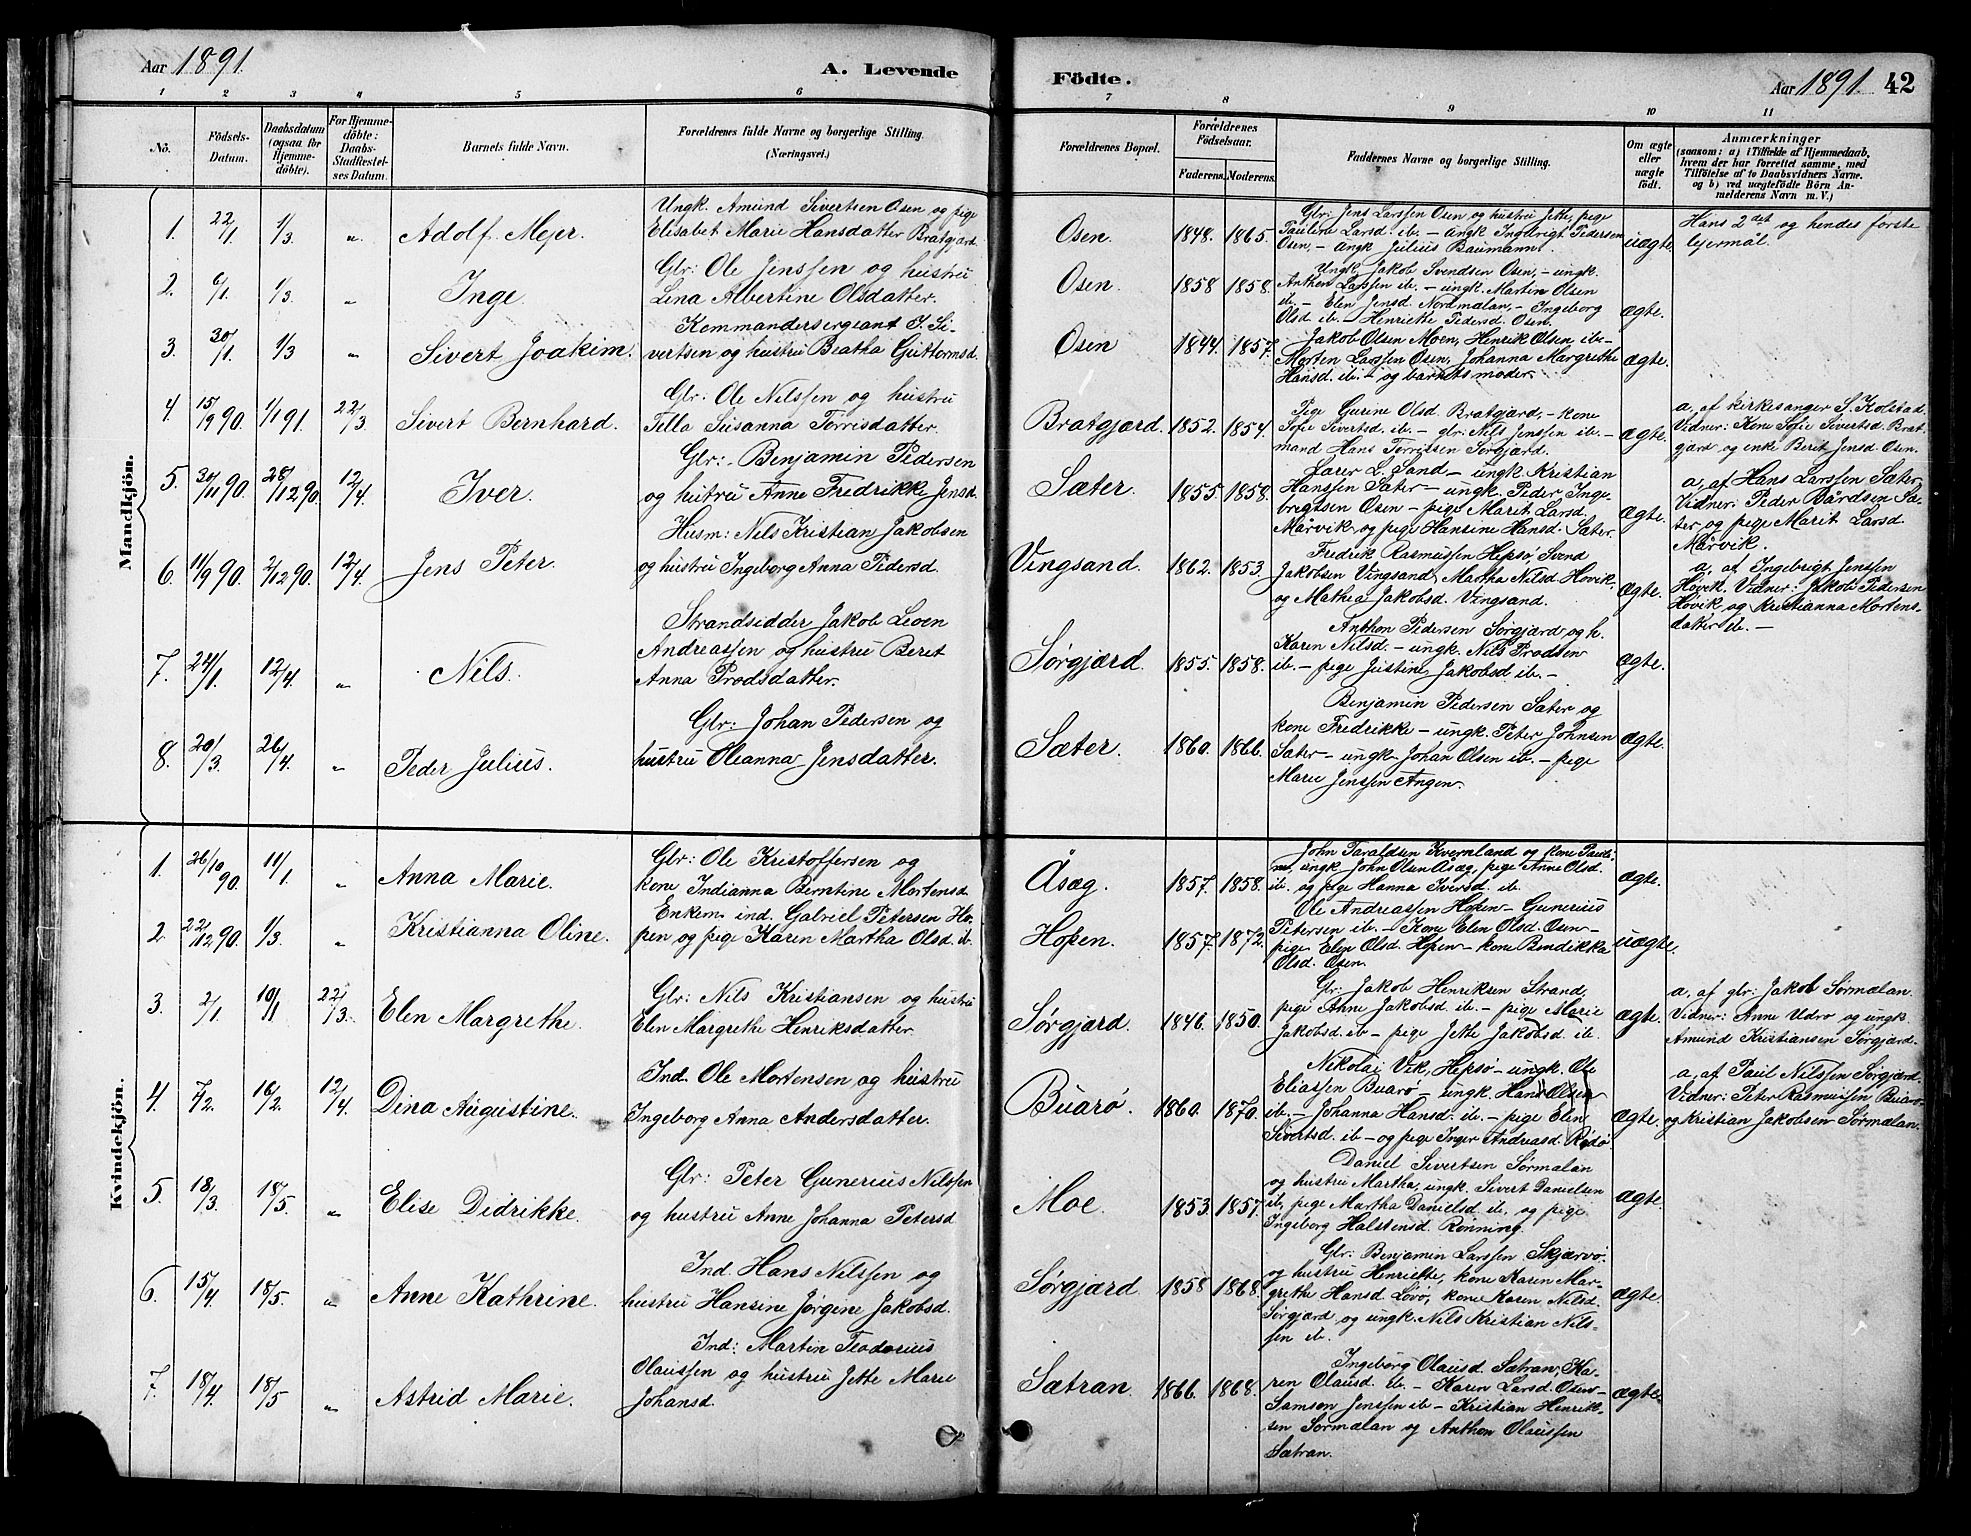 Aar 1891.
A. Levende
1 2 3 4 5 6
No.
Födsels-
Datum.
Daabsdatum
(ogsaa for
Hjemme-
döbte).
For Hjemme-
döbte:
Daabs-
Stadfæstel-
ses Datum.
Barnets fulde Navn.
Forældrenes fulde Navne og borgerlige Stilling.
(Næringsvei.)
Mandkjön.
1. 22/1 1/3 „ Adolf Mejer.
Ungk. Amund Sivertsen Osen og pige
Elisabet Marie Hansdatter Bratgjærd.
2. 6/1 1/3 „ Inge.
Glr: Ole Jenssen og hustru
Lina Albertine Olsdatter.
3. 30/1 1/3 „ Sivert Joakim.
Kommandersergeant J. Si-
vertsen og hustru Beatha Guttormsd.
4 15/9 90. 1/1 91. 22/3. Sivert Bernhard.
Glr. Ole Nilssen og hustru
Fella Susanna Torrisdatter.
5. 30/11 90. 28/12 90. 12/4. Iver.
Glr:- Benjamin Pedersen
og hutru Anne Fredrikke Jensd.
6. 11/9 90. 2/12 90. 12/4. Jens Peter.
Husm: Nils Kristian Jakobsen
og hustru Ingeborg Anna Pedersd.
7. 24/1. 12/4. „ Nils.
Strandsidder Jakob Leven
Andreassen og hustru Beret
Anna Prodsdatter.
8. 20/3. 26/4. „ Peder Julius.
Glr. Johan Pedersen og
hustru Oleanna Jensdatter.
Kvindekjön.
1. 26/10 90. 11/1. „ Anna Marie.
Glr: Ole Kristoffersen og
kone Indianna Berntine Mortensd.
2. 22/12 90. 1/3. „ Kristianna Oline.
Enkem. ind. Gabriel Petersen Ho-
pen og pige Karen Martha Olsd. ib.
3. 2/1. 10/1 22/3. Elen Margrethe.
Glr: Nils Kristiansen og hustru
Elen Margrethe Henriksdatter.
4. 7/2. 16/2. 12/4. Dina Augustine.
Ind. Ole Mortensen og hustru
Ingeborg Anna Andersdatter.
5. 18/3. 18/5. „ Elise Didrikke.
Glr: Peter Gunerius Nilssen
og hustru Anne Johanna Petersd.
6. 15/4. 18/5. „ Anne Kathrine.
Ind. Hans Nilssen og
hustru Hansine Jørgine Jakobsd.
7. 18/4. 18/5 „ Astrid Marie.
Ind: Martin Teodorius
Olaussen og hustru Jette Marie
Johansd.
Födte.
Aar 1891. 42
7 8 9 10 11
Forældrenes Bopæl.
Forældrenes
Födselsaar.
Faderens. Moderens.
Faddernes Navne og borgerlige Stilling.
Om ægte
eller
uægte
födt.
Anmærkninger
(saasom: a) i Tilfælde af Hjemmedaab,
hvem der har forrettet samme, med
Tilföielse af to Daabsvidners Navne.
og b) ved uægtefödte Börn An-
melderens Navn m. V.)
Osen. 1848. 1865.
Glr: Jens Larssen Osen og hustru Jette, pige
Paulina Larsd. ib. – ungk Ingebrigt Pedersen
Osen, – ungk Julius Baumann.
uægte.
Hans 2det og hendes første
lejermål.
Osen. 1858 1858.
Ungk. Jakob Svendsen Osen, – ungk.
Anthon Larssen ib. – ungk. Martin Olsen
ib. – Elen Jensd. Nordmelan, – Ingeborg
Olsd ib. – Henriette Pedersd. Osen.
ægte.
Osen 1844. 1857.
Jakob Olsen Moen, Henrik Olsen ib. –
Morten Larssen Osen, Johanna Margrethe
Hansd. ib. – og barnets moder.
ægte.
Bratgjærd. 1852. 1854.
Pige Gurine Olsd. Bratgjærd, – kone
Sofie Sivertsd. ib. – glr: Nils Jenssen ib. –
mand Hans Torrissen Sørgjærd.
ægte.
a, af kirkesanger S. Kolstad.
Vidner: Kone Sofie Sivertsd. Brat-
gjærd og enke Berit Jensd. Osen.
Sæter. 1855. 1858.
Lærer L. Sand – ungk. Kristian
Hanssen Sæter – ungk. Peder Inge-
brigtsen Osen – pige Marit Larsd.
Mårvik og pige Hansine Hansd. Sæter.
ægte.
a, af Hans Larssen Sæter,
Vidner: Peder Bårdsen Sæ-
ter og pige Marit Larsd.
Mårvik.
Vingsand. 1862. 1853.
Fredrik Rasmussen Hepsø, Svend
Jakobsen Vingsand, Martha Nilsd. Hovik.
og Mathea Jakobsd. Vingsand.
ægte.
a, af Ingebrigt Jenssen
Høvik. Vidner: Jakob Pedersen
Høvik og Kristianna Mortens-
datter ib. –
Sørgjærd. 1855. 1858.
Anthon Pedersen Sørgjærd og h.
Karen Nilsd. – ungk. Nils Prodsen
ib. – pige Justine Jakobsd ib. –
ægte.
Sæter. 1860. 1866.
Benjamin Pedersen Sæter og
kone Fredrikke – ungk. Peter Johnsen
Sæter – ungk. Johan Olsen ib. – pige
Marie Jenssen Angen.
ægte.
Åsæg. 1857. 1858.
John Taraldsen Kvernland og kone Pauli-
ne, ungk John Olsen Åsæg, pige Anne Olsd.
ib. og pige Hanna Iversd. ib.
ægte.
Hopen. 1857. 1872.
Ole Andreassen Hopen – Gunerius
Petersen ib. – Kone Elen Olsd. Osen –
pige Elen Olsd. Hopen – kone Bendikka
Olsd. Osen.
uægte.
Sørgjærd. 1846. 1850.
Glr. Jakob Henriksen Strand,
pige Anne Jakobsd. ib. – pige Marie
Jakobsd. ib – pige Jette Jakobsd. ib.
ægte.
a, af glr: Jakob Sørmelan.
Vidner: Anne Udro og ungk.
Amund Kristiansen Sørgjærd.
Buarø. 1860. 1870.
Nikolai Vik, Hepsø – ungk. Ole
Eliassen Buarø – ungk. Hans Olsen
ib. – Johanna Hansd. ib. – pige Elen
Sivertsd. ib – og pige Inger Andreasd. Rødø
ægte.
a, af Paul Nilssen Sørgjærd.
Vidner: Peter Rasmussen Buarø
og Kristian Jakobsen Sørmelan.
Moe. 1853. 1857.
Daniel Sivertsen Sørmelan
og hustru Martha, ungk. Sivert Danielsen
ib, pige Martha Danielsd. ib. og pige
Ingeborg Halstensd. Rønning.
ægte.
Sørgjærd. 1858 1868.
Glr: Benjamin Larssen Skjærvø
og hustru Henriette, kone Karen Mar-
grethe Hansd. Lovø, kone Karen Nilsd.
Sørgjærd og ungk. Nils Kristian Nils-
sen ib.
ægte.
Sætran. 1866. 1868.
Ingeborg Olausd. Sætran, Ka-
ren Olausd. ib. – Karen Larsd. Osen –
Samson Jenssen ib – Kristian Henrik-
sen Sørmelan og Anthon Olaussen
Sætran.
ægte.